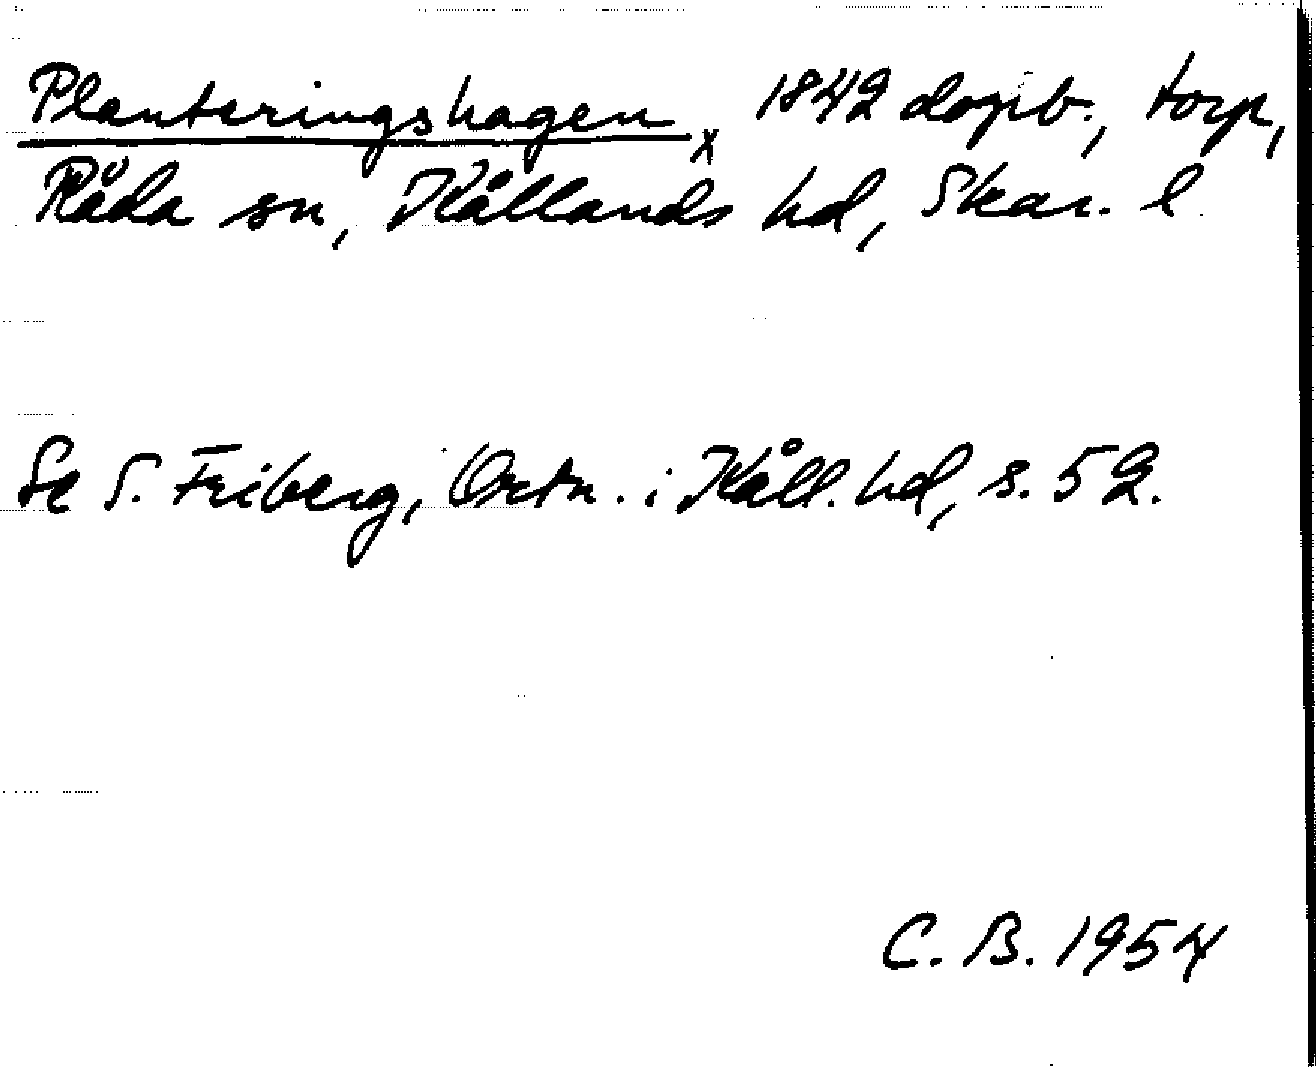 Planteringshagen x 1842 dopb., torp,
Råda sn, Kållands hd, Skar. l.
Se S. Friberg, Ortn. i Kåll. hd, s. 52.
C. B. 1954